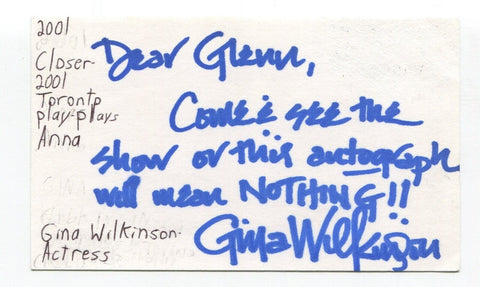 2001
Closer-
2001
Toronto
play-plays
Anna
Gina Wilkinson-
Actress
Dear Glenn,
Come & see the
show or this autograph
will mean NOTHING!!
Gina Wilkinson